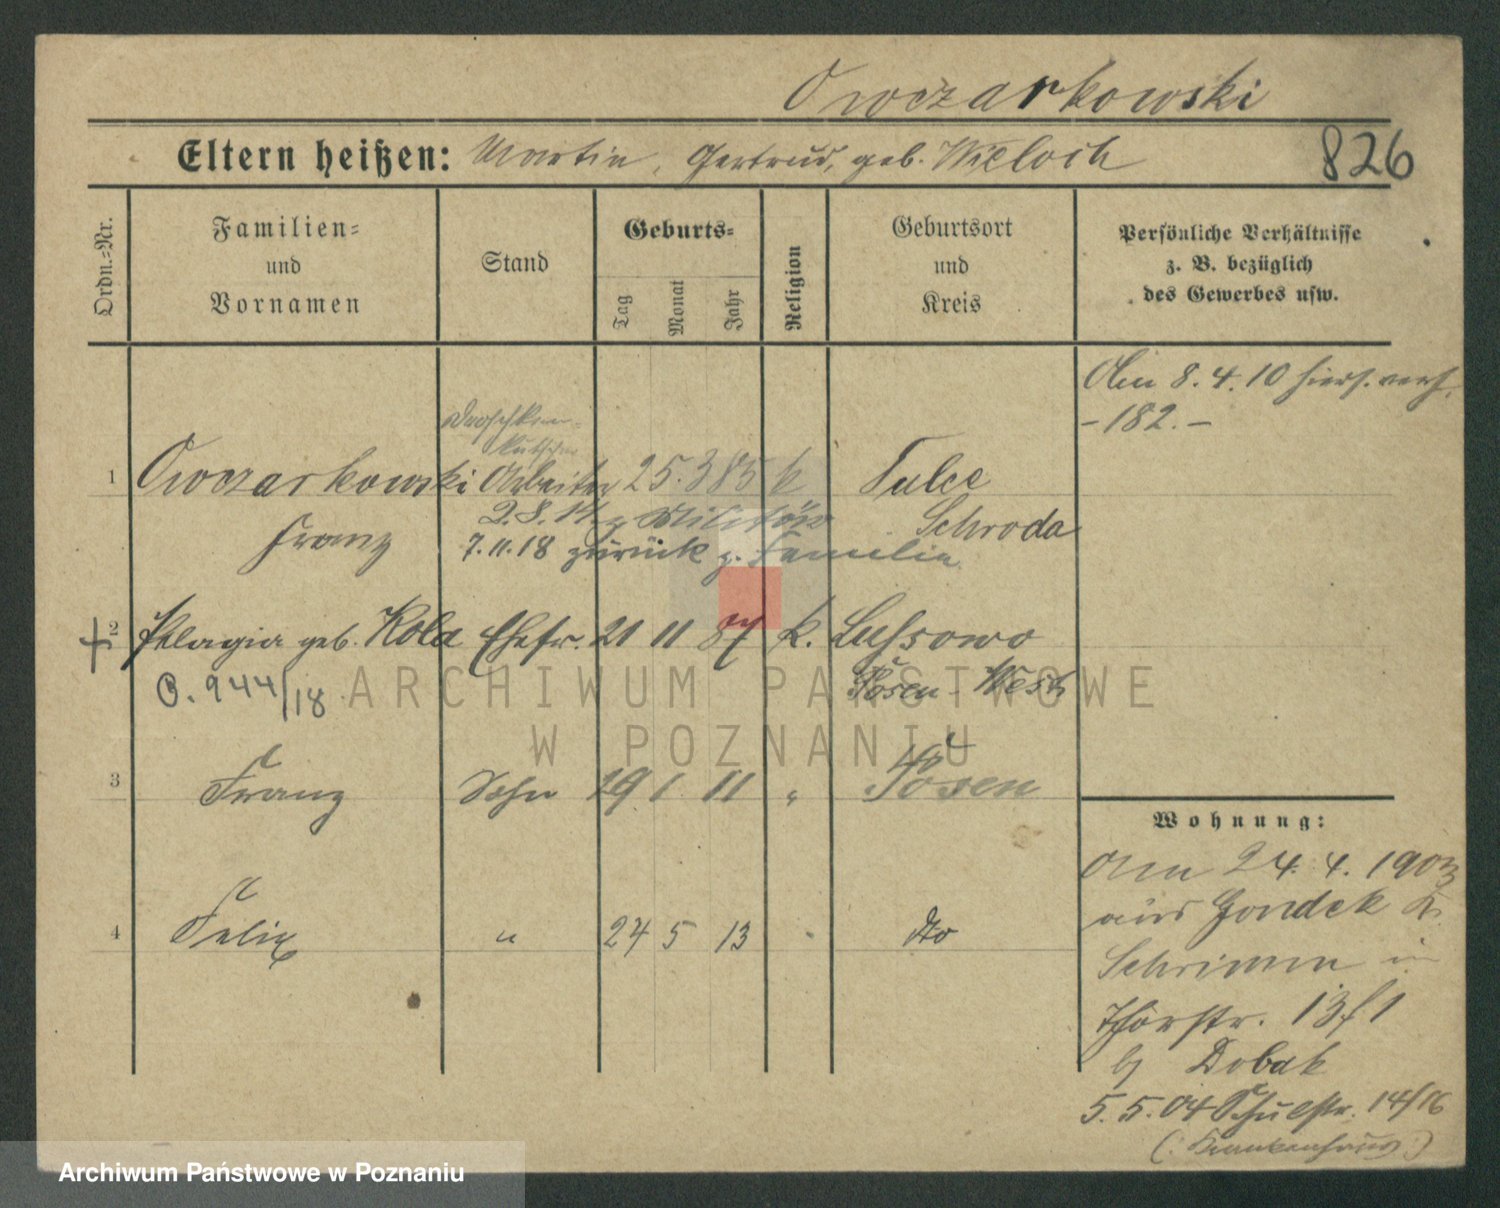 Owczarkowski
Eltern heißen: Martin, Gertrud, geb. Wieloch
826
Ordn.-Nr.
Familien-
und
Vornamen
Stand
Geburts-
Tag
Monat
Jahr
Religion
Geburtsort
und
Kreis
Persönliche Verhältnisse
z. B. bezüglich
des Gewerbes usw.
Am 8. 4. 10 hiers. verh.
- 182. -
Droschken-
kutscher
1 Owczarkowski Arbeiter 25. 3 85 k Tulce
Franz
2. 8. 14 z. Militär
Schroda
7. 11. 18 zurück z. Familie
2 Pelagia geb. Kola Ehefr. 21 11 87 k. Lussowo
Posen-West
B. 944/18
3 Franz Sohn 19 1 11 " Posen
4 Felix " 24 5 13 dto
Wohnung:
Am 24. 4. 1903
aus Gondek Kr.
Schrimm in
Thorstr. 13/1
bei Dobak
5. 5. 04 Schulstr. 14/16
(: Krankenhaus :)
ARCHIWUM PAŃSTWOWE
W POZNANIU
Archiwum Państwowe w Poznaniu